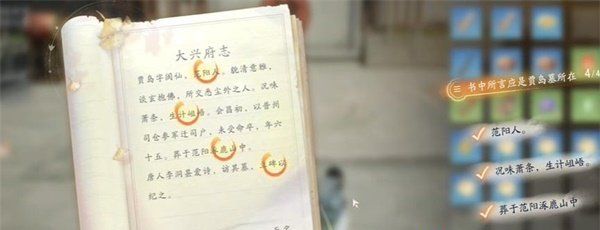 大兴府志
贾岛字阆仙，范阳人。貌清意雅，
谈玄抱佛，所交悉尘外之人。况味
萧条，生计岨峿。会昌初，以普州
司仓参军迁司户，未受命卒，年六
十五。葬于范阳涿鹿山中。
唐人李洞县爱诗，访其墓，立碑以
纪之。
书中所言应是贾岛墓所在 4/4
范阳人。
况味萧条，生计岨峿。
葬于范阳涿鹿山中